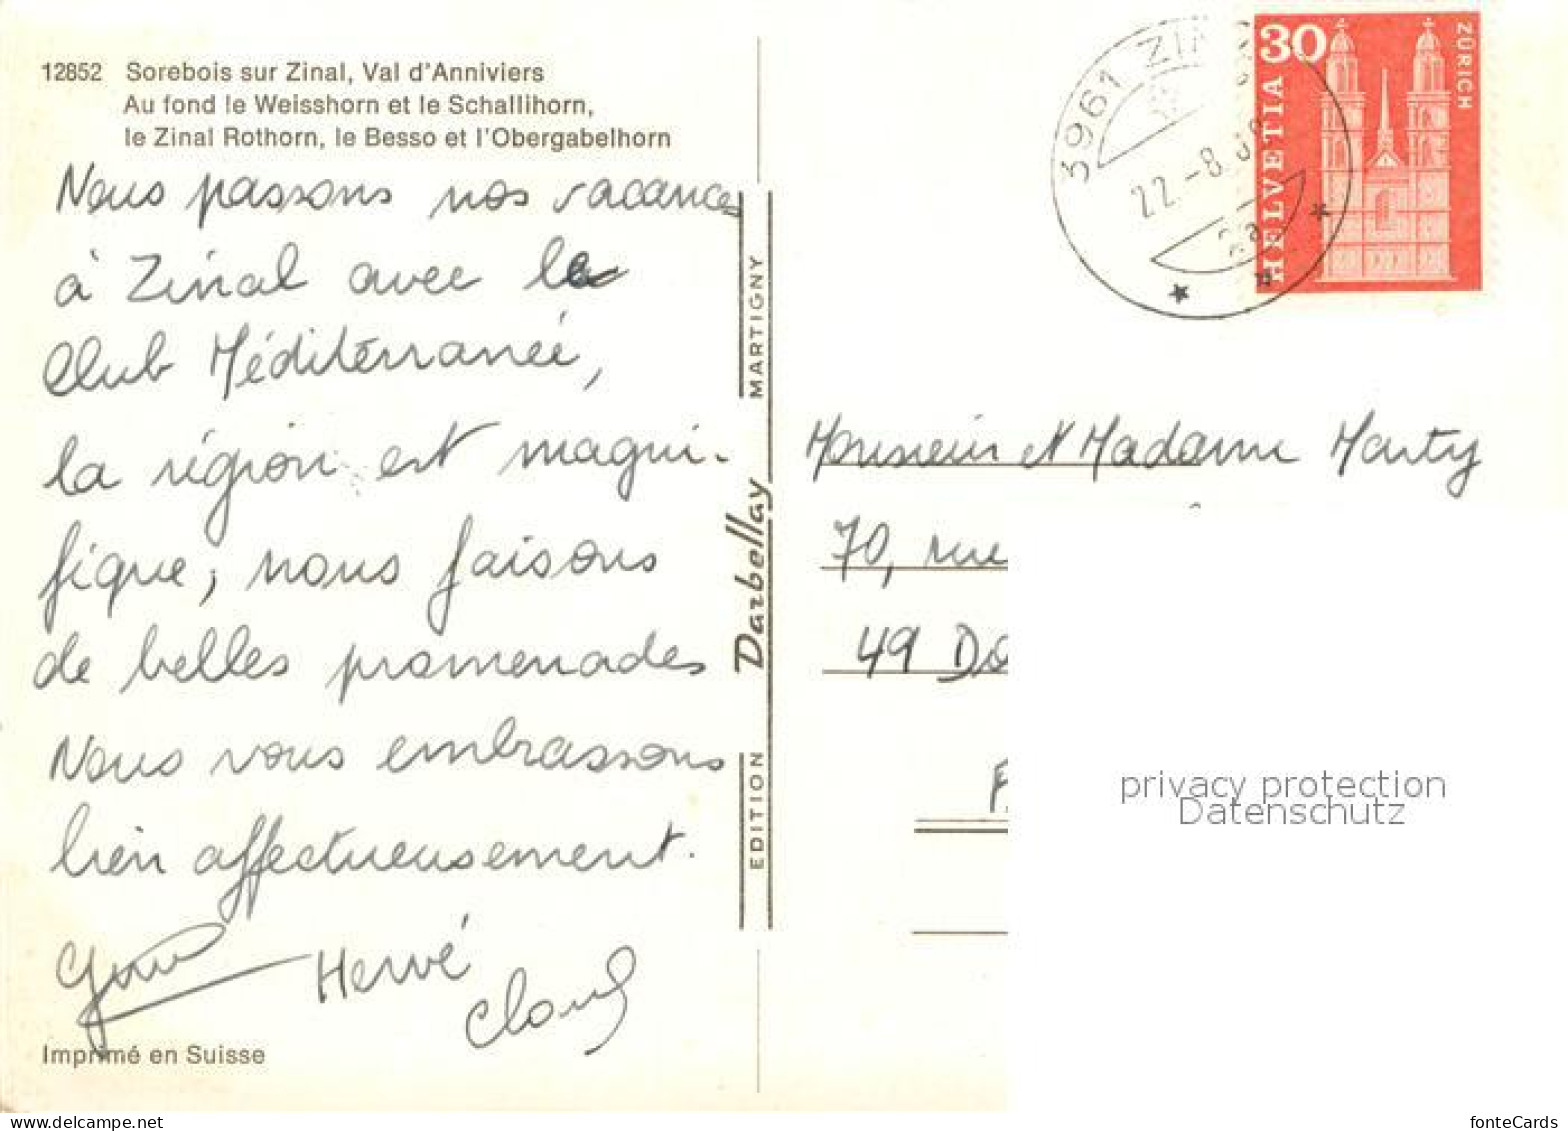 12852 Sorebois sur Zinal, Val d'Anniviers
Au fond le Weisshorn et le Schallihorn,
le Zinal Rothorn, le Besso et l'Obergabelhorn
Nous passons nos vacances
à Zinal avec le
Club Méditérranéé,
la région est magni-
fique, nous faisons
de belles promenades
Nous vous embrassons
bien affectueusement.
Hervé
Imprimé en Suisse
EDITION Darbellay MARTIGNY
3961 ZIN
22.-8
HELVETIA
30
ZÜRICH
Monsieur et Madame Marty
70, rue
49 Do
privacy protection
Datenschutz
fonteCards